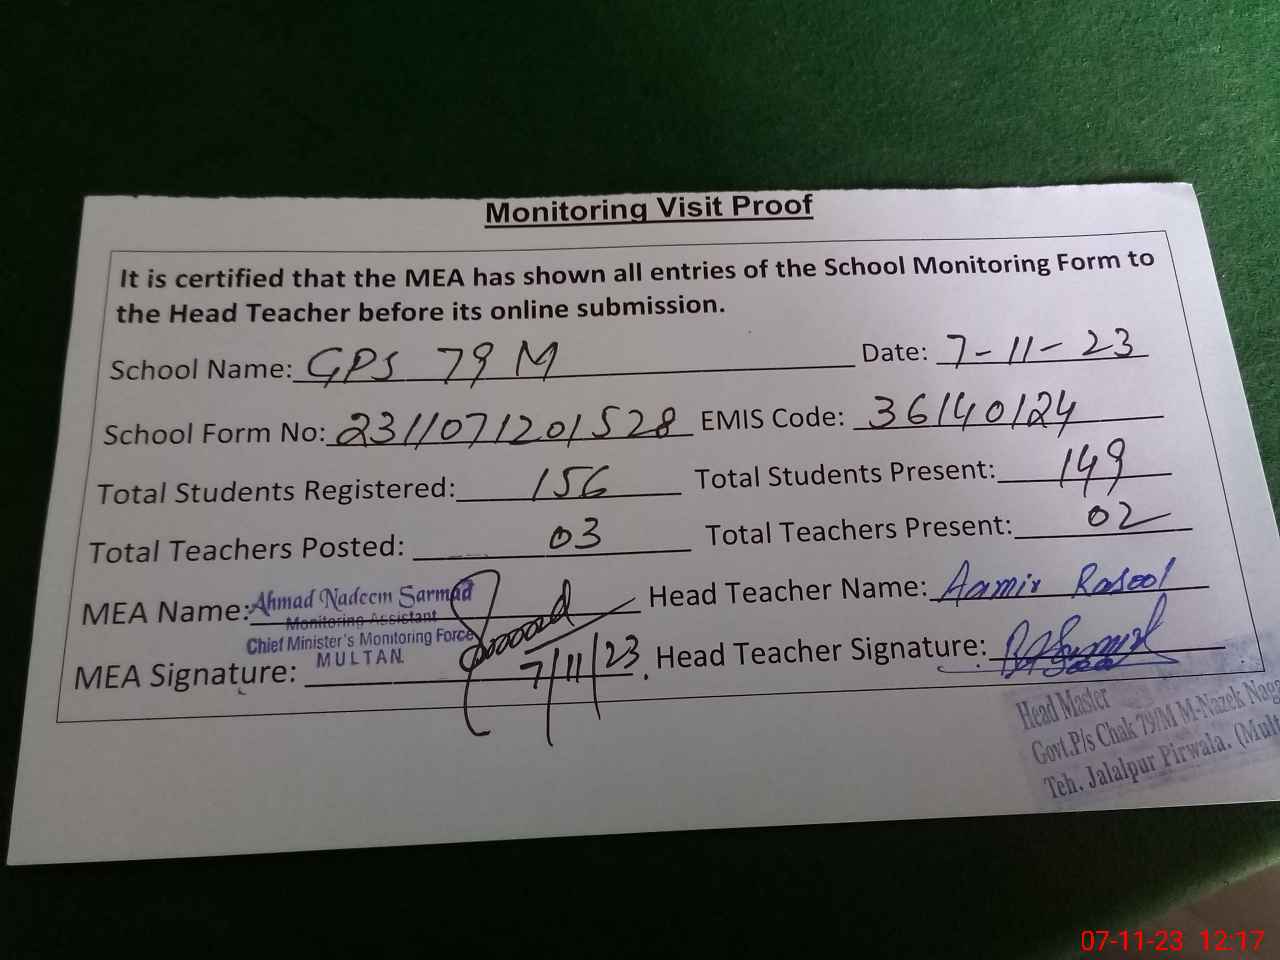 Monitoring Visit Proof
It is certified that the MEA has shown all entries of the School Monitoring Form to
the Head Teacher before its online submission.
School Name: GPS 79 M Date: 7-11-23
School Form No: 2311071201528 EMIS Code: 36140124
Total Students Registered: 156 Total Students Present: 149
Total Teachers Posted: 03 Total Teachers Present: 02
MEA Name: Ahmad Nadeem Sarmad Head Teacher Name: Aamir Rasool
Monitoring Assistant
Chief Minister's Monitoring Force
MULTAN.
MEA Signature: 7/11/23. Head Teacher Signature:
Head Master
Govt.P/s Chak 79/M M-Nazek
Teh. Jalalpur Pirwala.
07-11-23 12:17